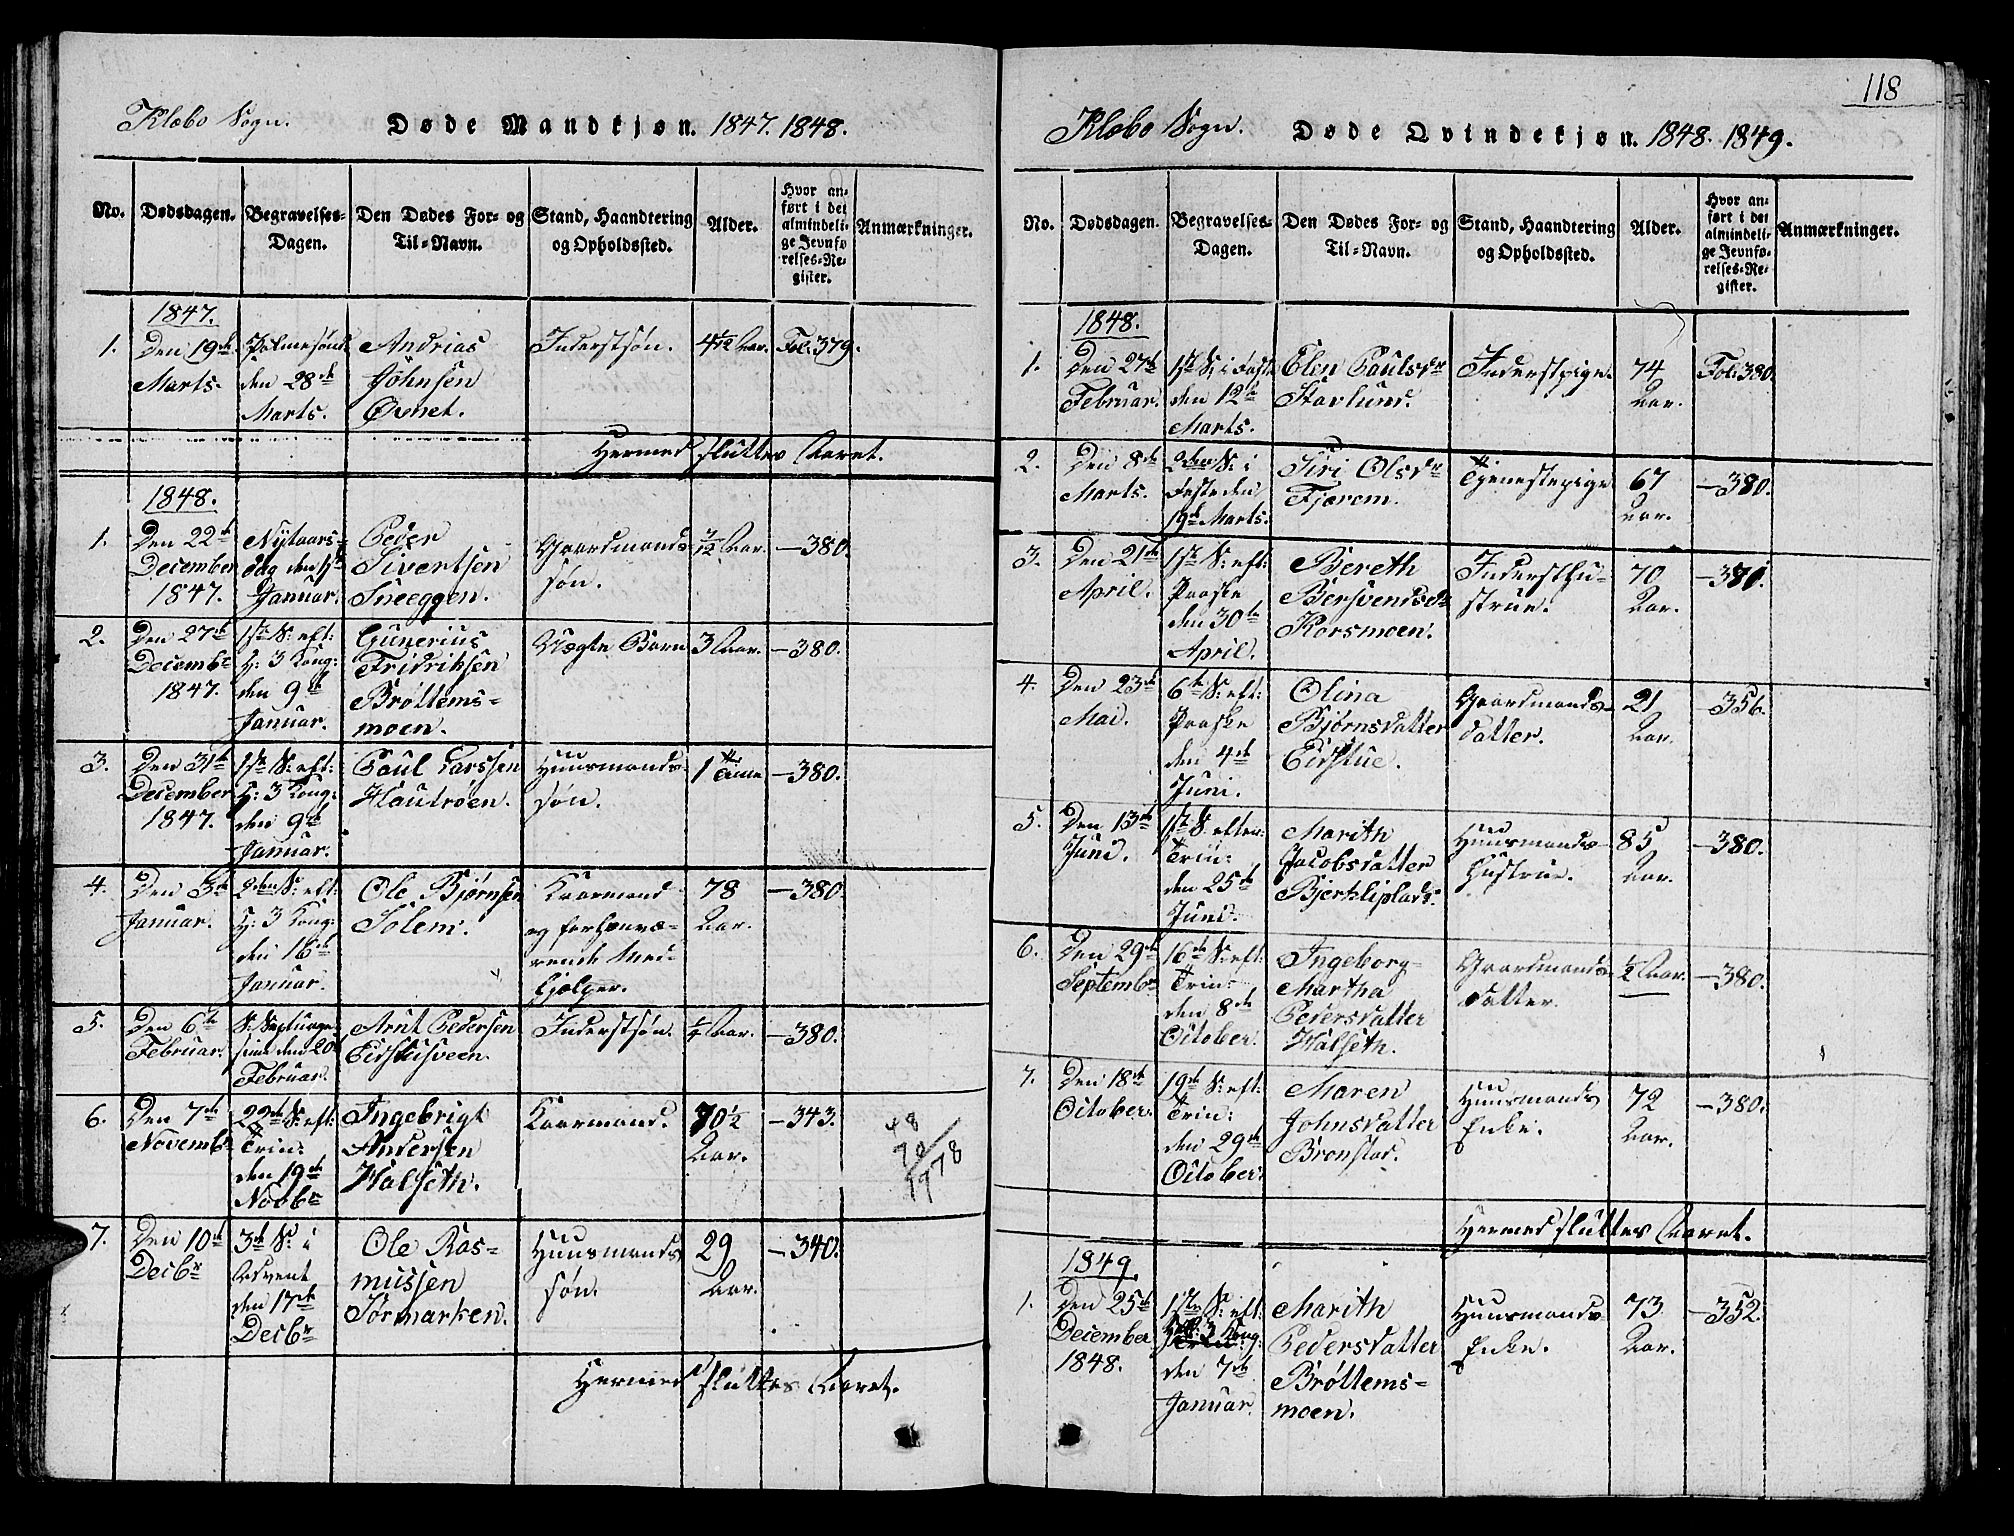 Klæbo Sogn.
Døde Mandkjøn. 1847. 1848.
No.
Dødsdagen.
Begravelses-
Dagen.
Den Dødes For- og
Til-Navn.
Stand, Haandtering
og Opholdssted.
Alder.
Hvor an-
ført i det
almindeli-
ge Jevnfø
relses-Re-
gister.
Anmærkninger.
1847.
1.
Den 19de
Marts.
Palmesønd.
den 28de
Marts.
Andrias
Johnsen
Øvnet.
Inderstsøn.
4 1/12 Aar.
Fol. 379.
Hermed sluttes Aaret.
1848.
1.
Den 22de
December
1847.
Nytaars-
dag den 1ste
Januar.
Peder
Sivertsen
Sneeggen.
Gaardmands-
søn.
3/12 Aar.
—380.
2.
Den 27de
Decembr
1847.
1ste S: eft:
H: 3 Kong:
den 9de
Januar.
Gunerius
Fridrihsen
Brøttems-
moen.
Uægte Barn
3 Aar.
—380.
3.
Den 31te
December
1847.
1ste S: eft:
H: 3 Kong:
den 9de
Januar.
Paul Larssen
Hautroen.
Huusmands-
søn.
1 Time
—380.
4.
Den 3de
Januar.
2den S: eft:
H: 3 Kong:
den 16de
Januar.
Ole Bjørnsen
Solem.
Kaarmand
og forhenvæ-
rende Med-
hjelper.
78
Aar.
—380.
5.
Den 6te
Februar.
S: Septuage-
sima den 20de
Februar.
Arnt Pedersen
Eidstusveen.
Inderstsøn.
1/4 Aar.
—380.
6.
Den 7de
Novembr
22de S: eft:
Trin:
den 19de
Novbr
Ingebrigt
Andersen
Halseth.
Kaarmand.
70 1/2
Aar.
—343.
48
70
1978
7.
Den 10de
Decbr
3de S: i
Advent
den 17de
Decbr
Ole Ras-
mussen
Sørmarken.
Huusmands
søn.
29
Aar.
—340.
Hermed sluttes Aaret.
118
Klæbo Sogn.
Døde Qvindekjøn. 1848. 1849.
No.
Dødsdagen.
Begravelses-
Dagen.
Den Dødes For- og
Til-Navn.
Stand, Haandtering
og Opholdssted.
Alder.
Hvor an-
ført i det
almindeli-
ge Jevnfø-
relses-Re-
gister.
Anmærkninger.
1848.
1.
Den 27de
Februar.
1ste S: i Faste
den 12te
Marts.
Elen Paulsdr
Storlund.
Inderstpige.
74
Aar.
Fol. 380.
2.
Den 8de
Marts.
2den S: i
Faste den
19de Marts.
Siri Olsdr
Fjærem.
Tjenestepige
67
Aar.
—380.
3.
Den 21de
April.
1ste S: eft:
Paaske
den 30te
April.
Bereth
Bersvendsdr
Korsmoen.
Indersthu-
strue.
70
Aar.
—380.
4.
Den 23de
Mai.
6te S: eft:
Paaske
den 4de
Juni.
Olina
Bjørnsdatter
Eidstue.
Gaardmands-
datter.
21
Aar.
—356.
5.
Den 13de
Juni.
1ste S: efter:
Trin:
den 25de
Juni.
Marith
Jacobsdatter
Bjerkliplads.
Huusmands-
Hustrue.
85
Aar.
—380.
6.
Den 29de
Septembr
16de S: eft:
Trin:
den 8de
October.
Ingeborg
Martha
Pedersdatter
Halseth.
Gaardmands-
datter.
1/2 Aar.
—380.
7.
Den 18de
October.
19de S: eft:
Trin:
den 29de
October.
Maren
Johnsdatter
Brønstad.
Huusmands
Enke.
72
Aar.
—380.
Hermed sluttes Aaret.
1849.
1.
Den 25de
December
1848.
1ste S: eft:
H: 3 Kong:
den 7de
Januar.
Marith
Pedersdatter
Brøttems-
moen.
Huusmands-
Enke.
73
Aar.
—352.